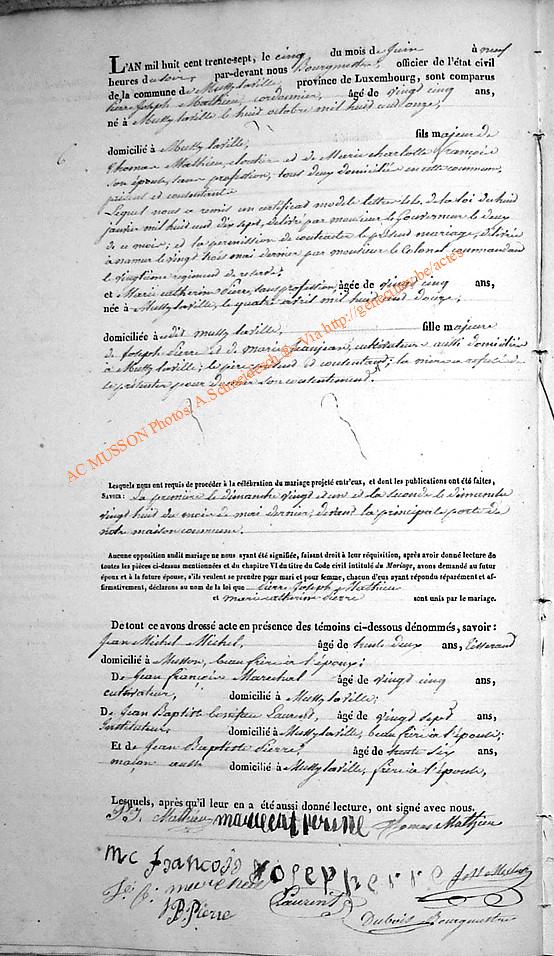 L'AN mil huit cent trente-sept, le cinq du mois de juin à neuf
heures du soir, par-devant nous Bourgmestre, officier de l'état civil
de la commune de Mussy laville province de Luxembourg, sont comparus
Pierre Joseph Mathieu, cordonnier, âgé de vingt cinq ans,
né à Mussy laville le huit octobre mil huit cent onze,
domicilié à Mussy laville, fils majeur de
Thomas Mathieu, et de Marie charlotte françoise
son épouse, sans profession, tous deux domiciliés en cette commune,
présent et consentant
Lequel nous a remis un certificat modèle lettre de la loi du huit
janvier mil huit cent dix sept, délivré par monsieur le Gouverneur le deux
de ce mois, et la permission de contracter le présent mariage, délivrée
à namur le vingt trois mai dernier par monsieur le Colonel commandant
le vingtième régiment de
et Marie catherine Pierre, sans profession, âgée de vingt cinq ans,
née à Mussy laville, le quatre avril mil huit cent douze,
domiciliée audit mussy laville, fille majeure
de Joseph Pierre et de marie jeanjean, cultivateur aussi domiciliés
à Mussy laville, le père présent et consentant, la mère a refusé de
se présenter pour donner son consentement.
Lesquels nous ont requis de procéder à la célébration du mariage projeté entr'eux, et dont les publications ont été faites,
SAVOIR: La première le dimanche vingt et un et la seconde le dimanche
vingt huit du mois de mai dernier, devant la principale porte de
notre maison commune.
Aucune opposition audit mariage ne nous ayant été signifiée, faisant droit à leur réquisition, après avoir donné lecture de
toutes les pièces ci-dessus mentionnées et du chapitre VI du titre du Code civil intitulé du Mariage, avons demandé au futur
époux et à la future épouse, s'ils veulent se prendre pour mari et pour femme, chacun d'eux ayant répondu séparément et af-
firmativement, déclarons au nom de la loi que Pierre Joseph Mathieu
et marie catherine Pierre sont unis par le mariage.
De tout ce avons dressé acte en présence des témoins ci-dessous dénommés, savoir:
Jean Michel Michel, âgé de trente deux ans, tisserand
domicilié à Musson, beau frère à l'époux;
De Jean françois Marechal âgé de vingt cinq ans,
cultivateur, domicilié à Mussy laville;
De Jean Baptiste Laurent, âgé de vingt sept ans,
Instituteur, domicilié à Mussy laville, beau frère à l'épouse;
Et de Jean Baptiste Pierre, âgé de trente six ans,
maçon aussi domicilié à Mussy laville, frère à l'épouse,
Lesquels, après qu'il leur en a été aussi donné lecture, ont signé avec nous.
P. J. Mathieu Thomas Mathieu
mc François Joseph Pierre
Laurent
J B Pierre Dubois Bourgmestre
AC MUSSON Photos: A.Schneidesch © - Via http://geneanet.be/actes